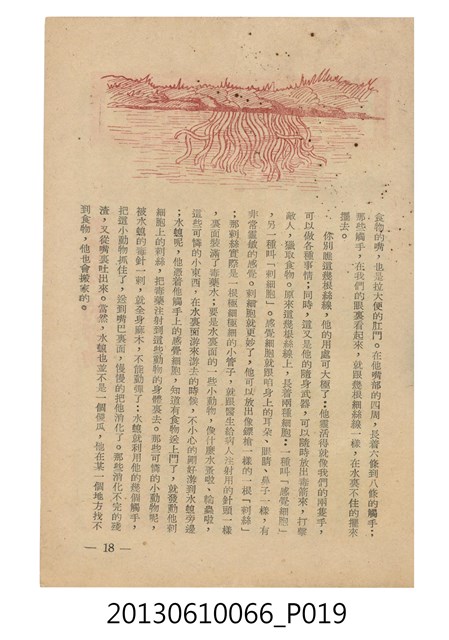 食物的嘴，也是拉大便的肛門。在他嘴部的四周，長着六條到八條的觸手；
那些觸手，在我們的眼裏看起來，就跟幾根細絲線一樣，在水裏不住的擺來
擺去。
你別瞧這幾根絲線，他的用處可大極了；他靈活得就像我們的兩隻手，
可以做各種事情；同時，這又是他的隨身武器，可以隨時放出毒箭來，打擊
敵人，獵取食物。原來這幾根絲線上，長着兩種細胞：一種叫「感覺細胞」
，另一種叫「刺細胞」。感覺細胞就跟咱身上的耳朵、眼睛、鼻子一樣，有
非常靈敏的感覺。刺細胞就更妙了，他可以放出像鏢槍一樣的一根「刺絲」
；那刺絲實際是一根極細極細的小管子，就跟醫生給病人注射用的針頭一樣
，裏面裝滿了毒藥水；要是水裏面的一些小動物，像什麼水蚤啦、輪蟲啦，
這些可憐的小東西，在水裏面游來游去的時候，不小心的剛好游到水螅旁邊
；水螅呢，他憑着他觸手上的感覺細胞，知道有食物送上門了，就發動他刺
細胞上的刺絲，把毒藥注射到這些動物的身體裏去。那些可憐的小動物呢，
被水螅的毒針一刺，就全身麻木，不能動彈了；水螅就利用他的幾個觸手，
把這小動物抓住了，送到嘴巴裏面，慢慢的把他消化了。那些消化不完的殘
渣，又從嘴裏吐出來。當然，水螅也並不是一個傻瓜，他在某一個地方找不
到食物，他也會搬家的。
— 18 —
20130610066_P019